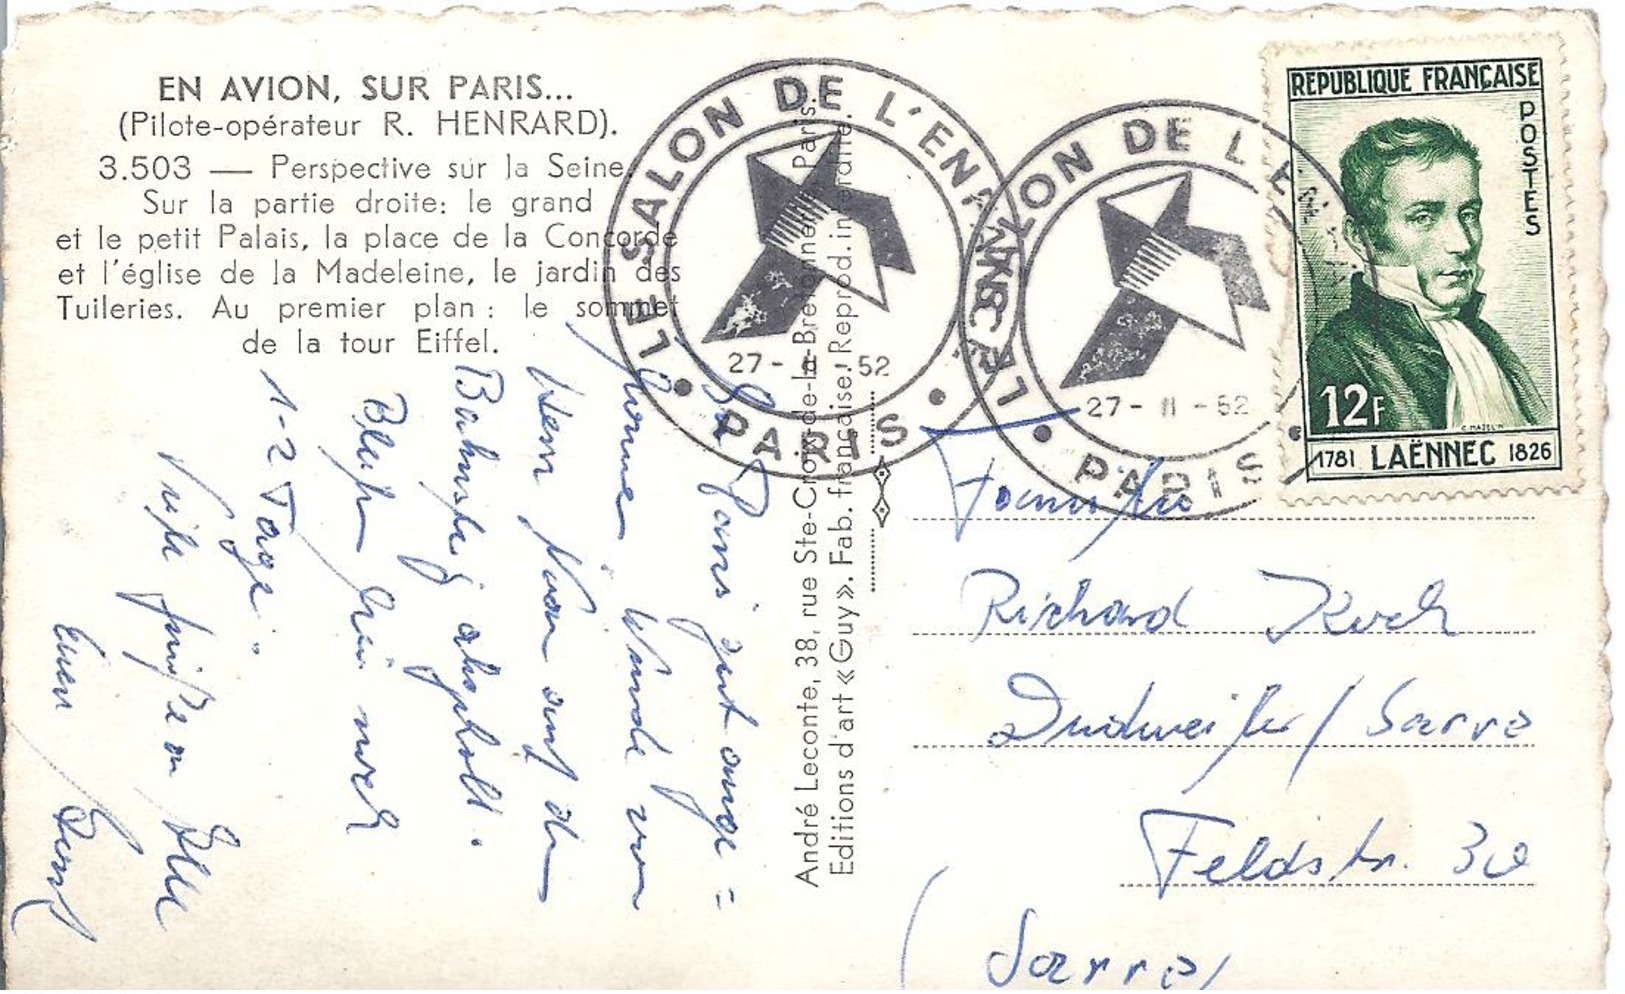 EN AVION, SUR PARIS...
(Pilote-opérateur R. HENRARD).
3.503 — Perspective sur la Seine.
Sur la partie droite: le grand
et le petit Palais, la place de la Concorde
et l'église de la Madeleine, le jardin des
Tuileries. Au premier plan : le sommet
de la tour Eiffel.
In Paris gut ange=
kommen. Wurde von
Herrn
Bahnsteig abgeholt.
Bleibe hier noch
1-2 Tage.
Viele Grüße an Alle
Euer Ernst
André Leconte, 38, rue Ste-Croix-de-la-Bretonnerie, Paris.
Editions d'art «Guy». Fab. française. Reprod. interdite.
LE SALON DE L'ENFANCE
27-11-52
PARIS
LE SALON DE L'ENFANCE
27-11-52
PARIS
REPUBLIQUE FRANÇAISE
POSTES
12F
C. MAZELIN
1781 LAËNNEC 1826
Familie
Richard Koch
Dudweiler / Sarre
Feldstr. 30
(Sarre)